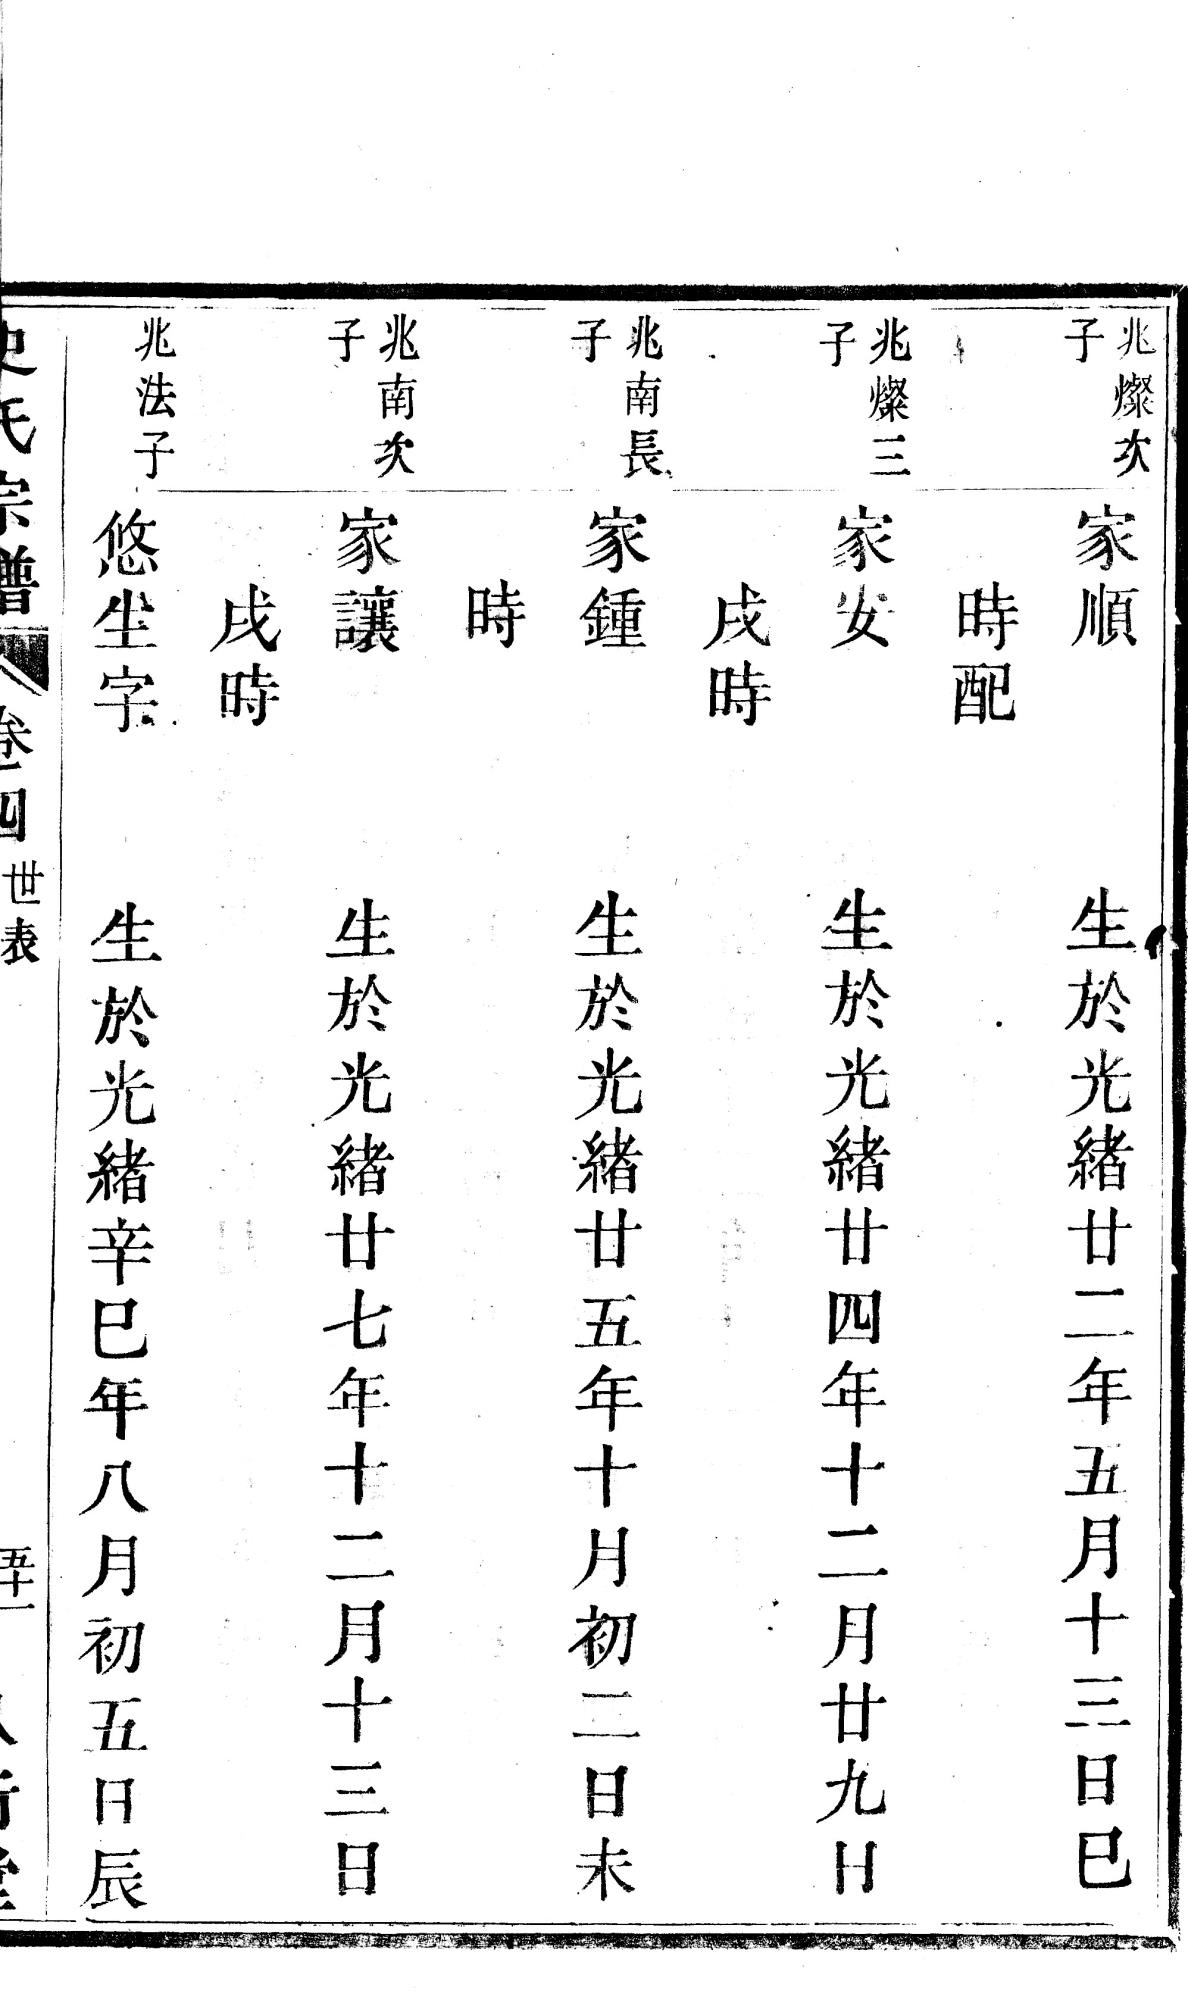 兆燦次子
家順 生於光緒廿二年五月十三日巳
時配
兆燦三子
家安 生於光緒廿四年十二月廿九日
戌時
兆南長子
家鍾 生於光緒廿五年十月初二日未
時
兆南次子
家讓 生於光緒廿七年十二月十三日
戌時
兆法子
悠生字 生於光緒辛巳年八月初五日辰
史氏宗譜 卷四 世表 五十一